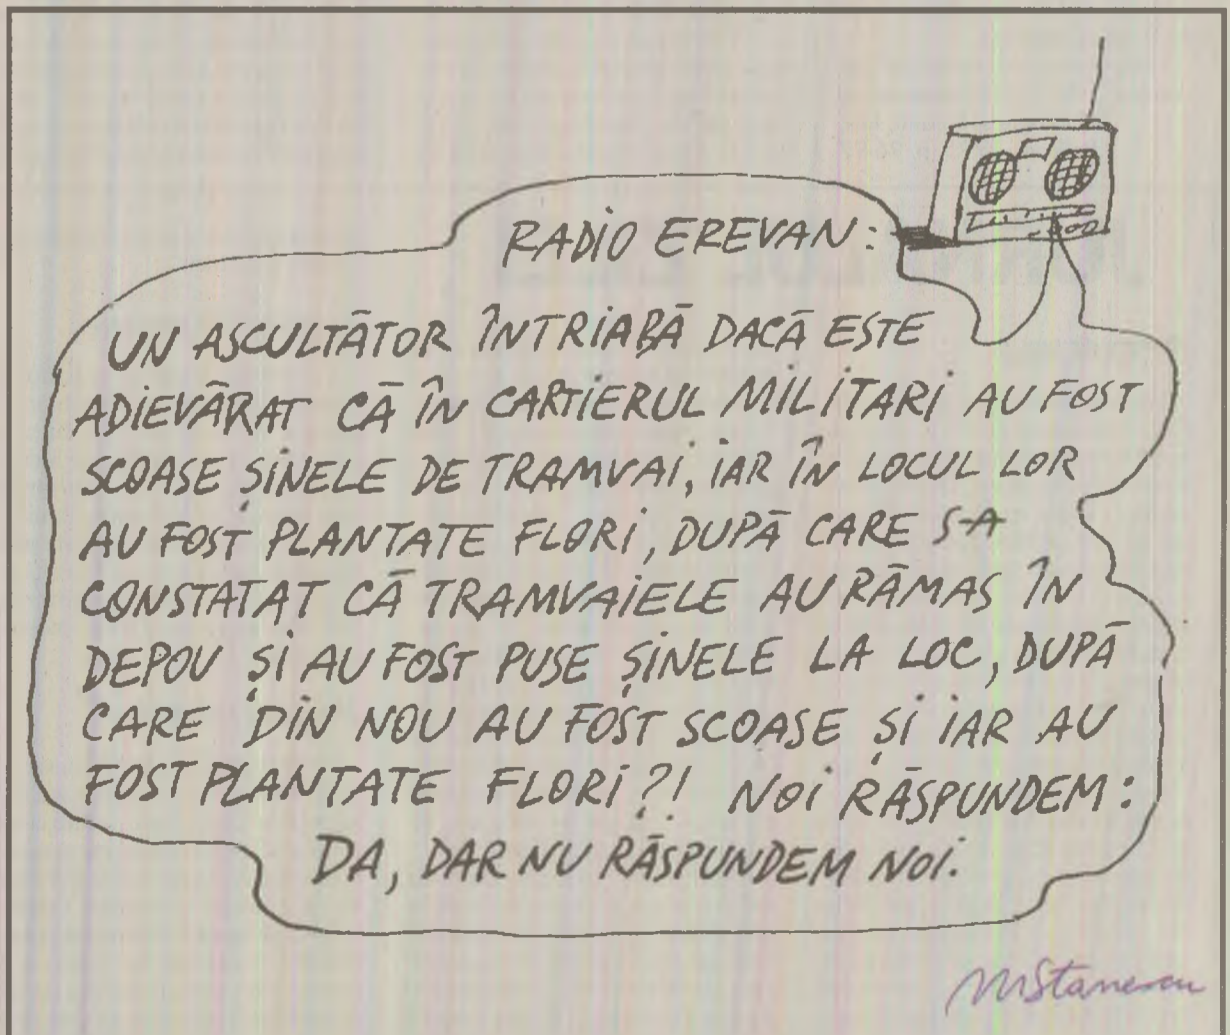 RADIO EREVAN:
UN ASCULTĂTOR ÎNTRIABĂ DACĂ ESTE
ADIEVĂRAT CĂ ÎN CARTIERUL MILITARI AU FOST
SCOASE ȘINELE DE TRAMVAI, IAR ÎN LOCUL LOR
AU FOST PLANTATE FLORI, DUPĂ CARE S-A
CONSTATAT CĂ TRAMVAIELE AU RĂMAS ÎN
DEPOU ȘI AU FOST PUSE ȘINELE LA LOC, DUPĂ
CARE DIN NOU AU FOST SCOASE ȘI IAR AU
FOST PLANTATE FLORI?! NOI RĂSPUNDEM:
DA, DAR NU RĂSPUNDEM NOI.
MStanescu